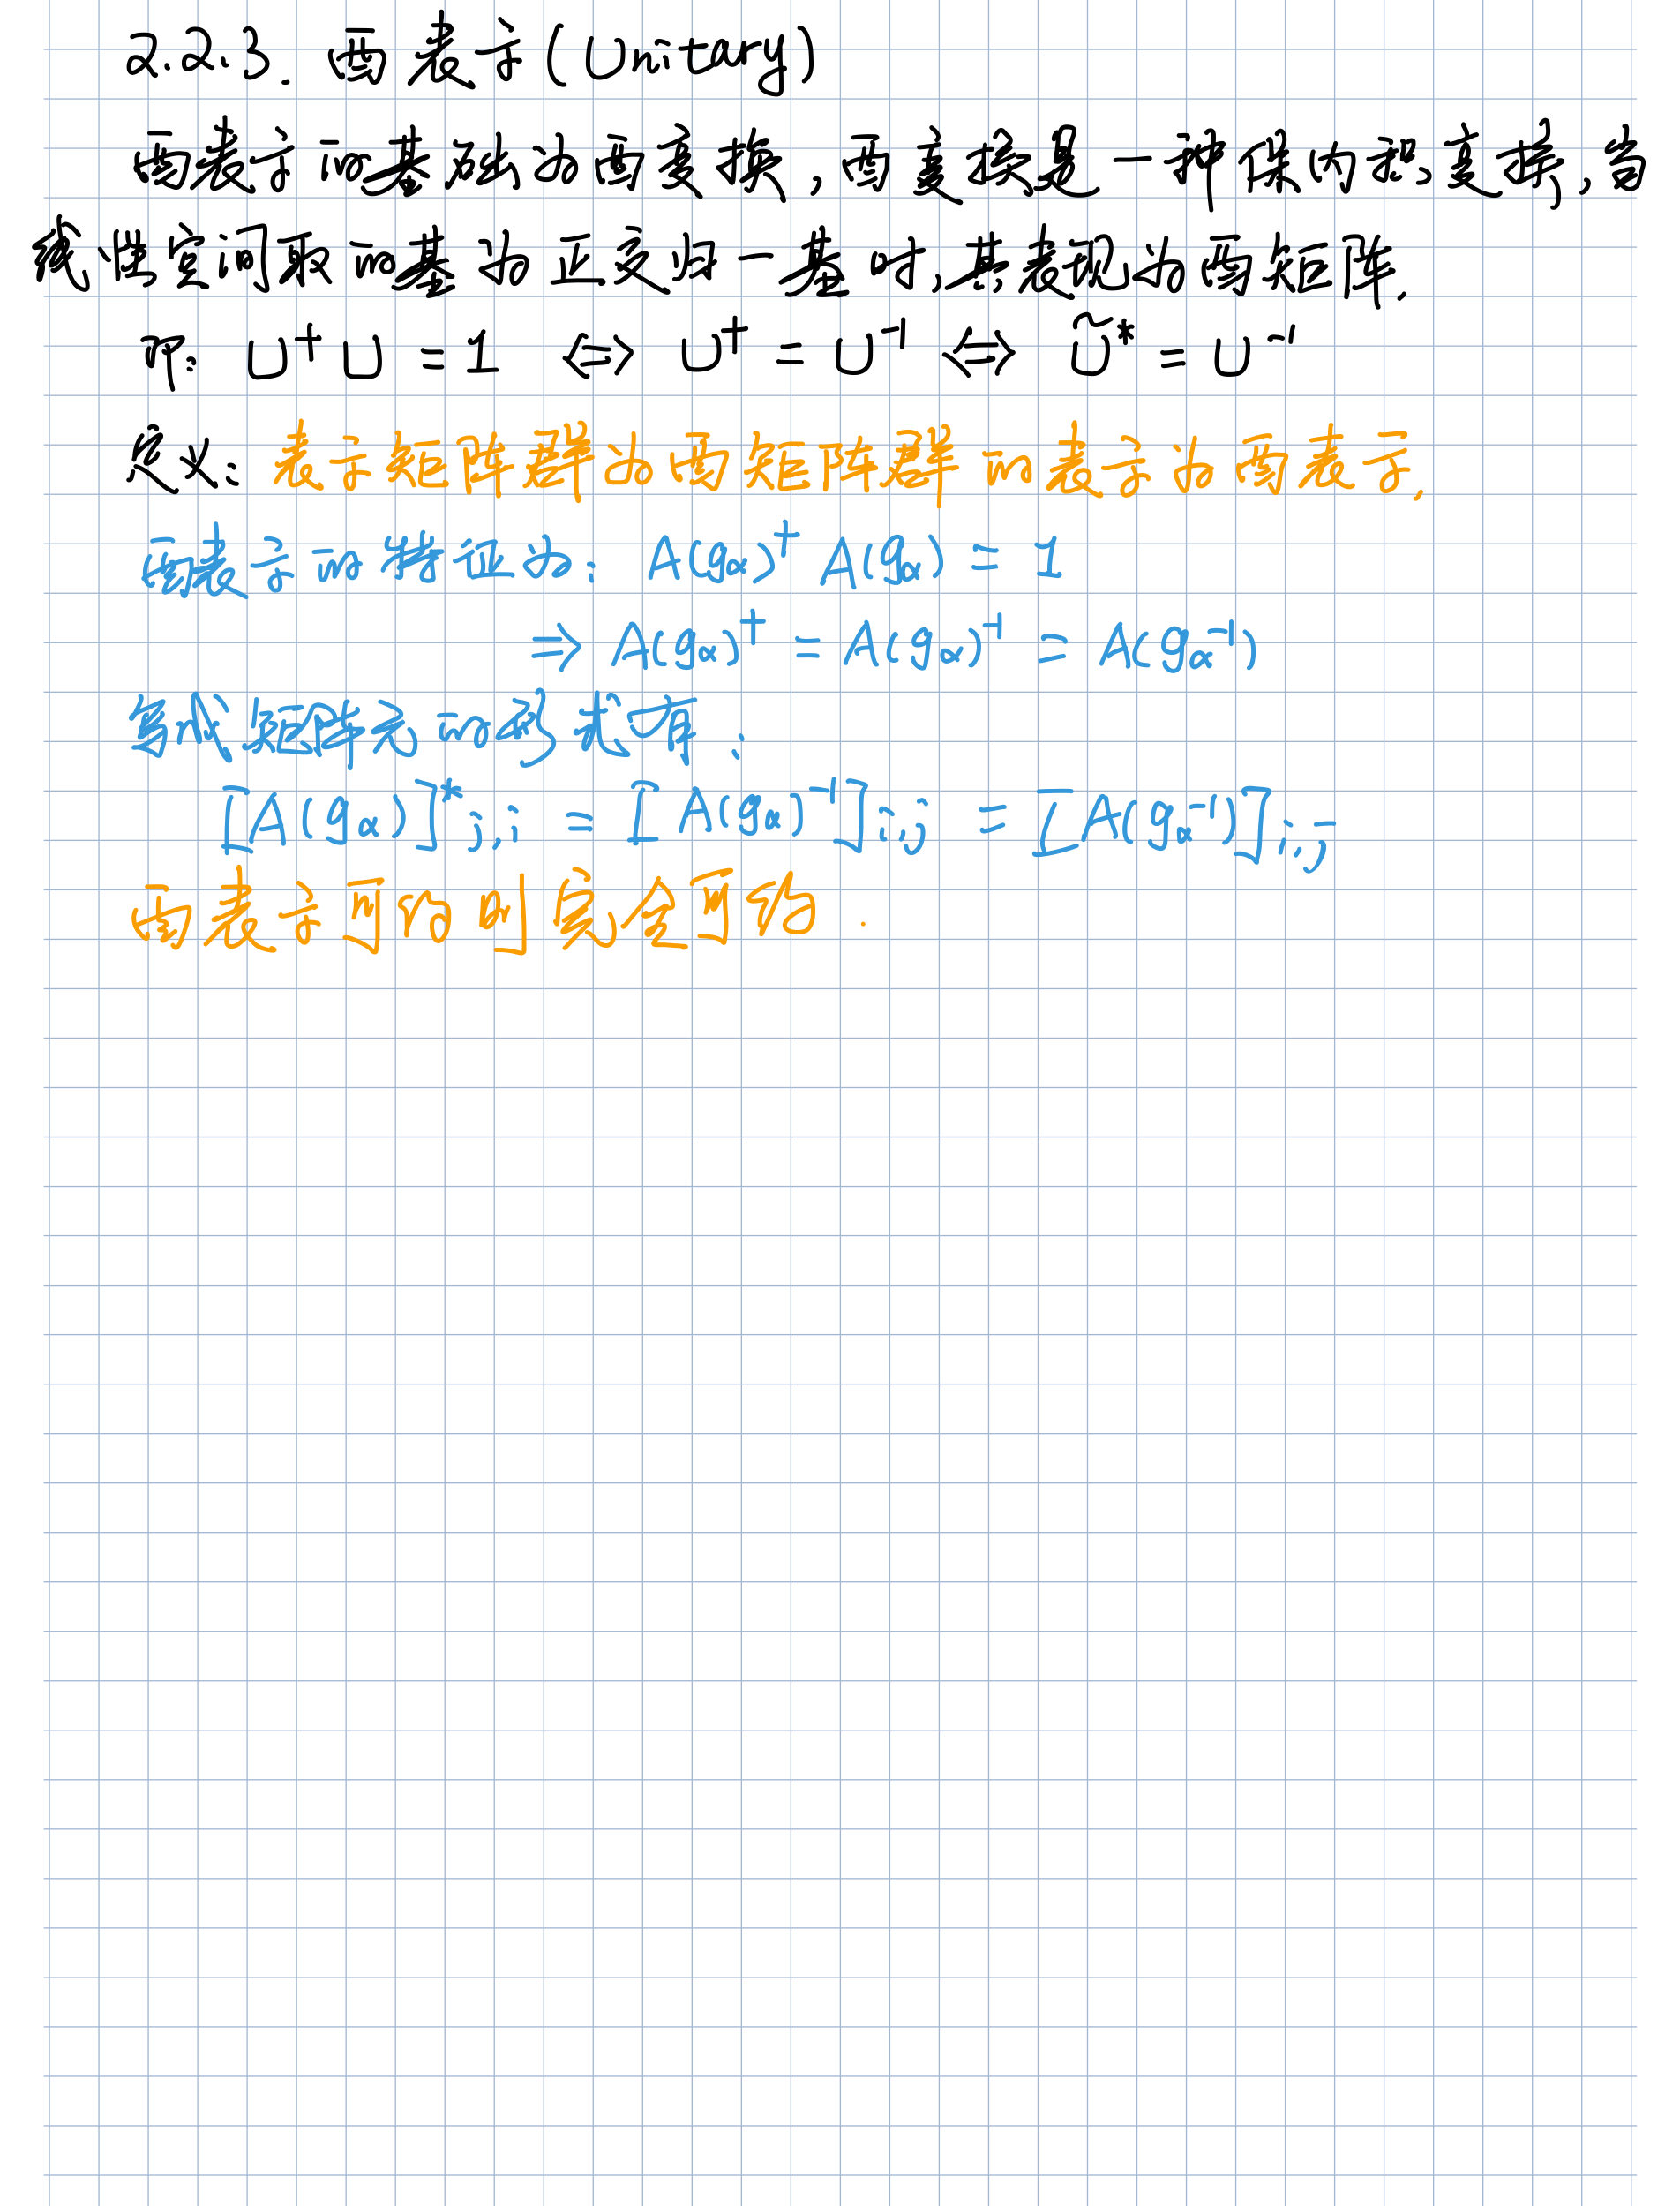 2.2.3. 酉表示(Unitary)
酉表示的基础为酉变换,酉变换是一种保内积变换,当
线性空间取的基为正交归一基时,其表现为酉矩阵.
即: U⁺U = 1 ⇔ U⁺ = U⁻¹ ⇔ Ũ* = U⁻¹
定义: 表示矩阵群为酉矩阵群的表示为酉表示.
酉表示的特征为: A(gα)⁺ A(gα) = 1
⇒ A(gα)⁺ = A(gα)⁻¹ = A(gα⁻¹)
写成矩阵元的形式有:
[A(gα)]*j,i = [A(gα)⁻¹]i,j = [A(gα⁻¹)]i,j
酉表示可约则完全可约.